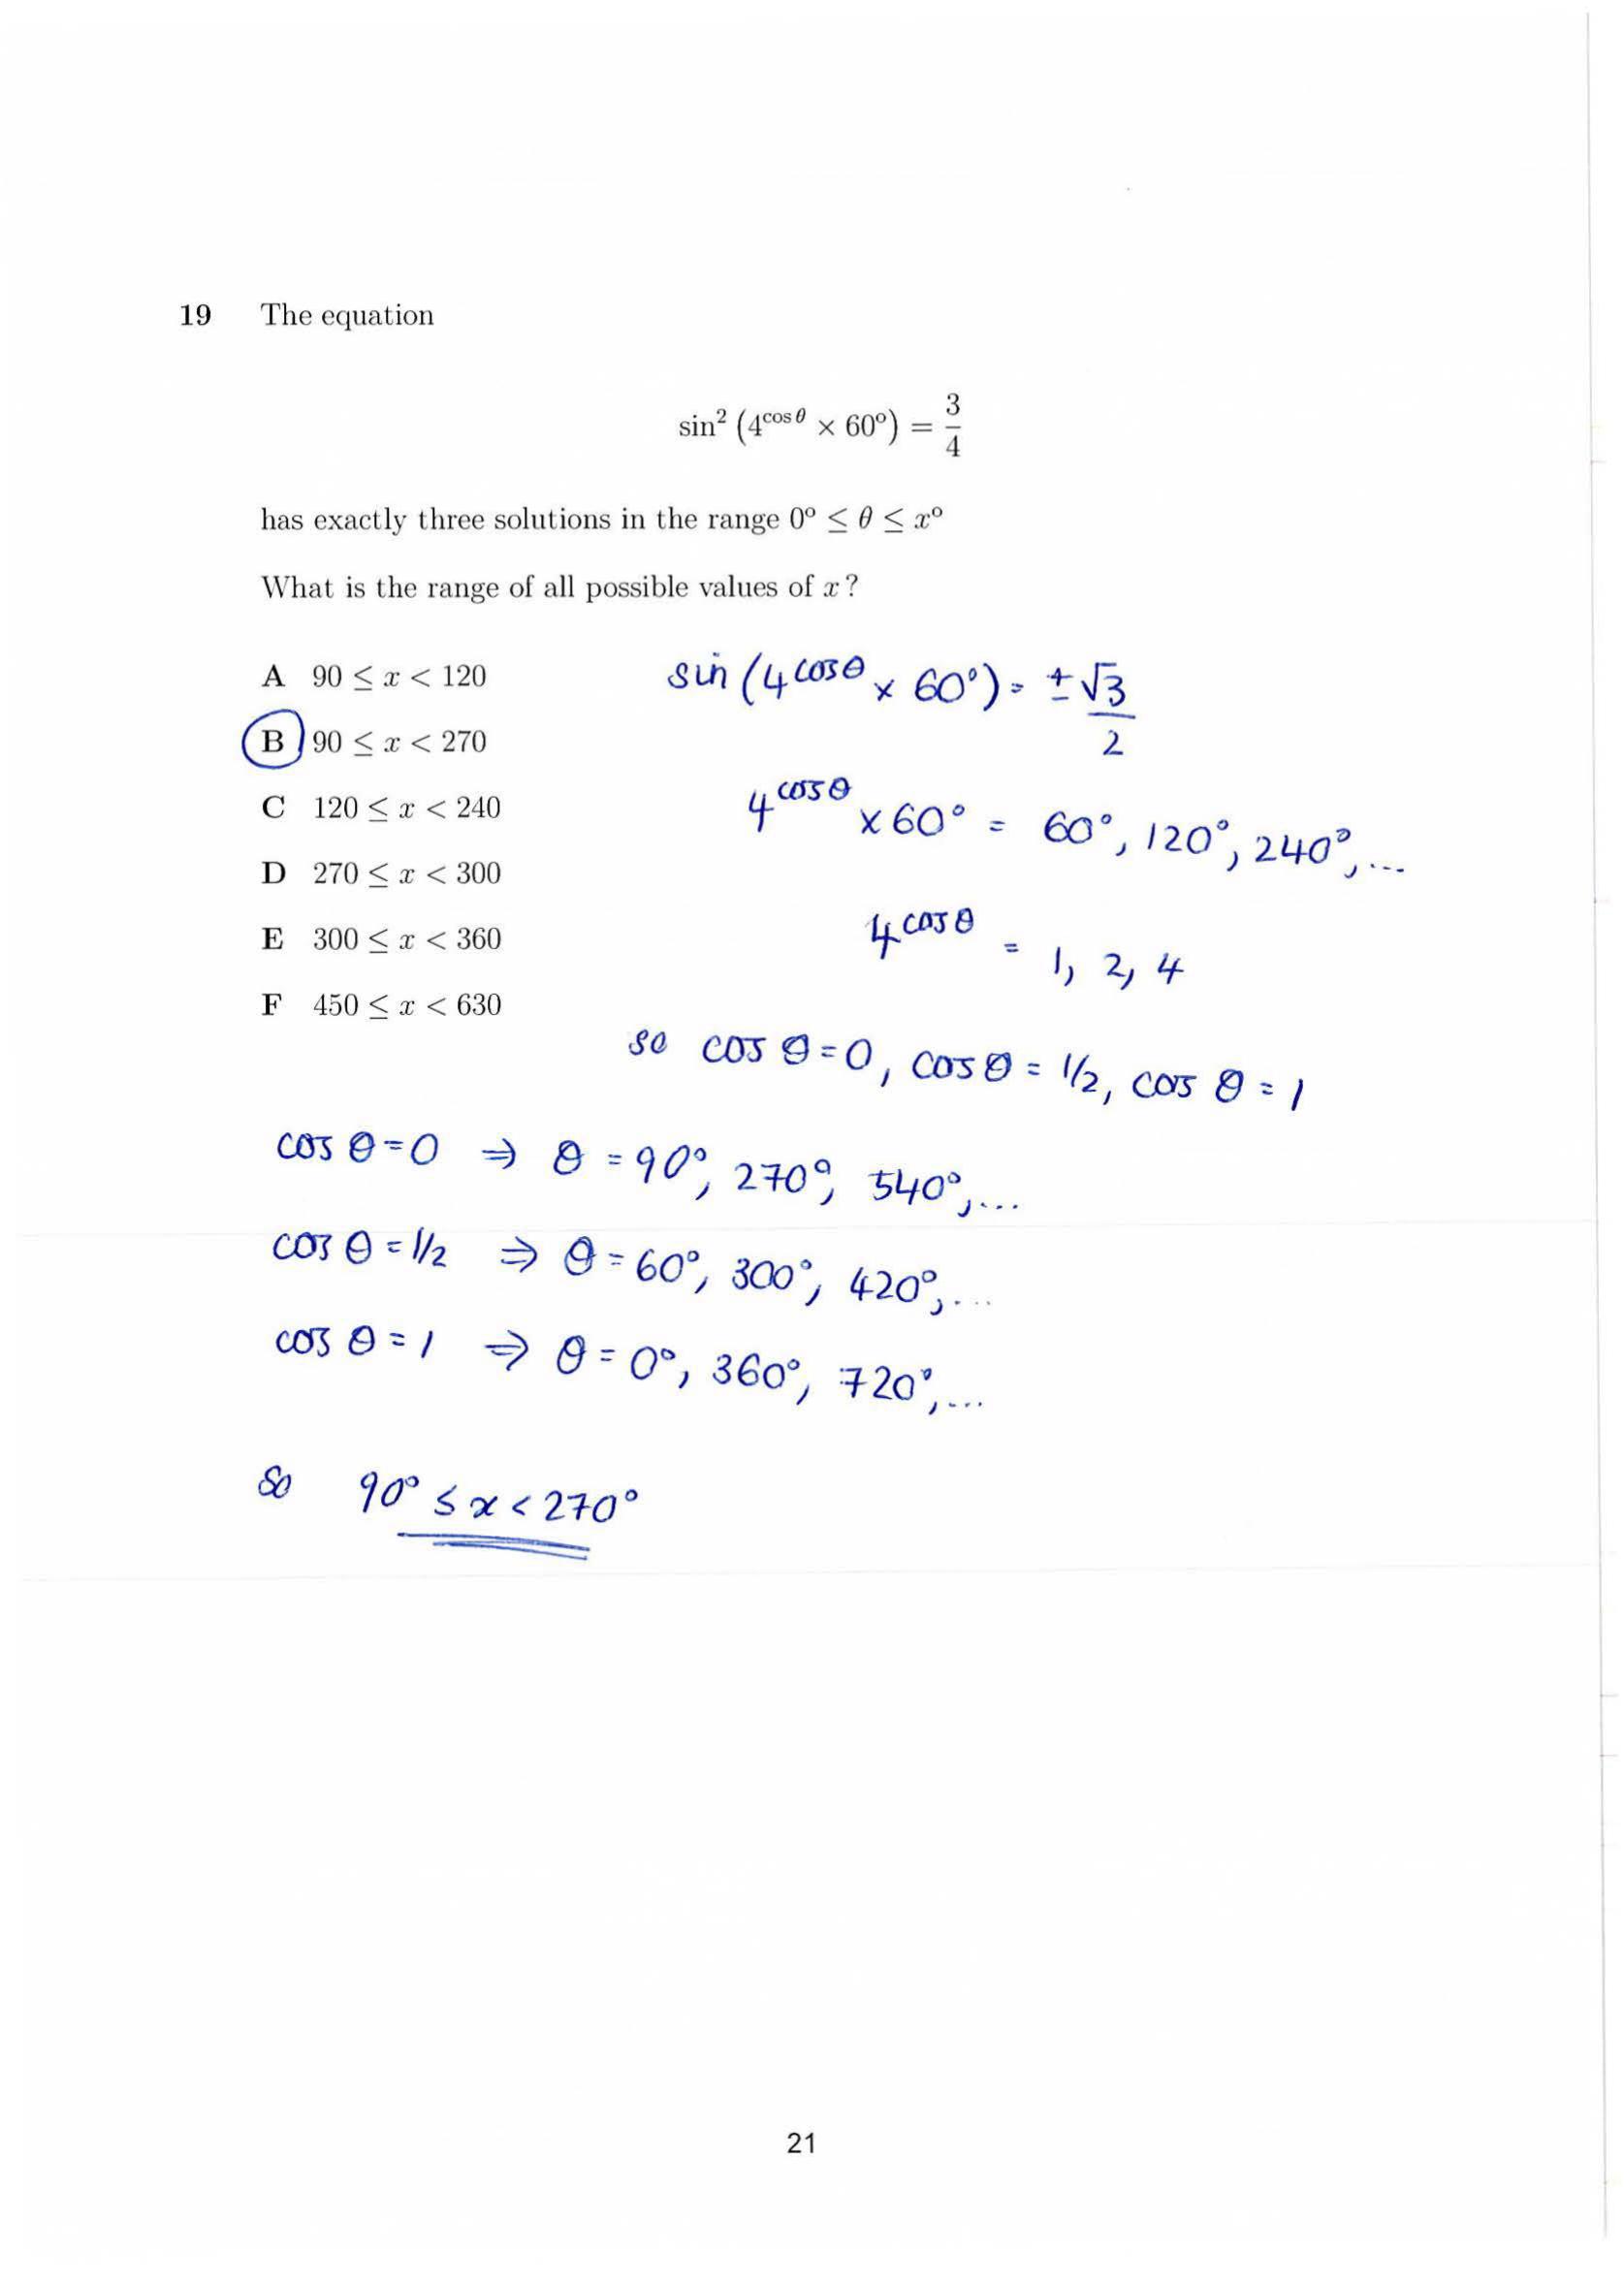 19 The equation
sin² (4^cos θ × 60°) = 3/4
has exactly three solutions in the range 0° ≤ θ ≤ x°
What is the range of all possible values of x?
A 90 ≤ x < 120
B 90 ≤ x < 270
C 120 ≤ x < 240
D 270 ≤ x < 300
E 300 ≤ x < 360
F 450 ≤ x < 630
sin (4^cos θ × 60°) = ±√3/2
4^cos θ × 60° = 60°, 120°, 240°, ...
4^cos θ = 1, 2, 4
so cos θ = 0, cos θ = 1/2, cos θ = 1
cos θ = 0 ⇒ θ = 90°, 270°, 540°, ...
cos θ = 1/2 ⇒ θ = 60°, 300°, 420°, ...
cos θ = 1 ⇒ θ = 0°, 360°, 720°, ...
So 90° ≤ x < 270°
21